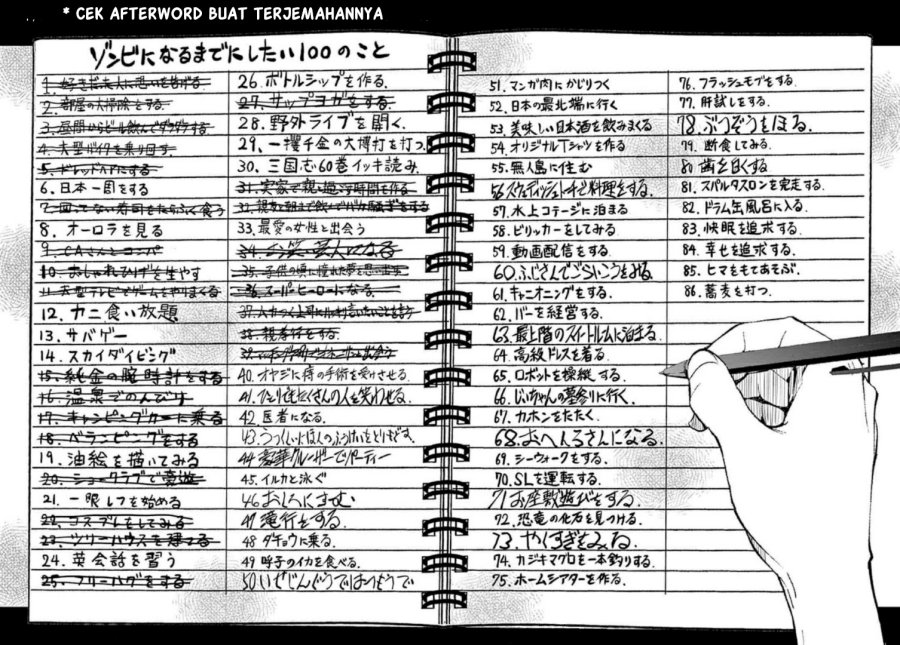 * CEK AFTERWORD BUAT TERJEMAHANNYA
ゾンビになるまでにしたい100のこと
1. 好きだった人に思いを告げる
2. 部屋の大掃除をする.
3. 昼間からビール飲んでダラダラする
4. 大型バイクを乗り回す.
5. ドレッドヘアにする
6. 日本一周をする
7. 回ってない寿司をたらふく食う
8. オーロラを見る
9. CAさんとコンパ
10. おしゃれひげを生やす
11. 大型テレビでゲームをやりまくる
12. カニ食い放題
13. サバゲー
14. スカイダイビング
15. 純金の腕時計をする
16. 温泉でのんびり
17. キャンピングカーに乗る
18. ベランピングをする
19. 油絵を描いてみる
20. ショークラブで豪遊
21. 一眼レフを始める
22. コスプレをしてみる
23. ツリーハウスを建てる
24. 英会話を習う
25. フリーハグをする
26. ボトルシップを作る.
27. サップヨガをする.
28. 野外ライブを開く.
29. 一攫千金の大博打を打つ.
30. 三国志60巻イッキ読み
31. 実家で親と過ごす時間を作る.
32. 親友と朝まで飲んでバカ騒ぎをする
33. 最愛の女性と出会う
34. お笑い芸人になる
35. 子供の頃に憧れた夢を思い出す
36. スーパーヒーローになる.
37. ムカつく上司に
38. 親孝行をする.
40. オヤジに痔の手術を受けさせる.
41. ひとりでもたくさんの人を笑わせる.
42. 医者になる.
43. うつくしいにほんのふうけいをとりもどす.
44. 豪華クルーザーでパーティー
45. イルカと泳ぐ
46. おしろにすむ
47. 滝行をする.
48. ダチョウに乗る.
49. 呼子のイカを食べる.
50. いせじんぐうではつもうで
51. マンガ肉にかじりつく
52. 日本の最北端に行く
53. 美味しい日本酒を飲みまくる
54. オリジナルTシャツを作る
55. 無人島に住む
56. スウェーディッシュトーチで料理をする.
57. 水上コテージに泊まる
58. ビリッカーをしてみる.
59. 動画配信をする.
60. ふじさんでごらいこうをみる
61. キャニオニングをする.
62. バーを経営する.
63. 最上階のスイートルームに泊まる.
64. 高級ドレスを着る.
65. ロボットを操縦する.
66. じいちゃんの墓参りに行く.
67. カホンをたたく.
68. おへんろさんになる.
69. シーウォークをする.
70. SLを運転する.
71. お座敷遊びをする.
72. 恐竜の化石を見つける.
73. やくすぎをみる.
74. カジキマグロを一本釣りする.
75. ホームシアターを作る.
76. フラッシュモブをする.
77. 肝試しをする.
78. ぶつぞうをほる.
79. 断食してみる.
80. 歯を白くする
81. スパルタスロンを完走する.
82. ドラム缶風呂に入る.
83. 快眠を追求する.
84. 幸せを追求する.
85. ヒマをもてあそぶ.
86. 蕎麦を打つ.